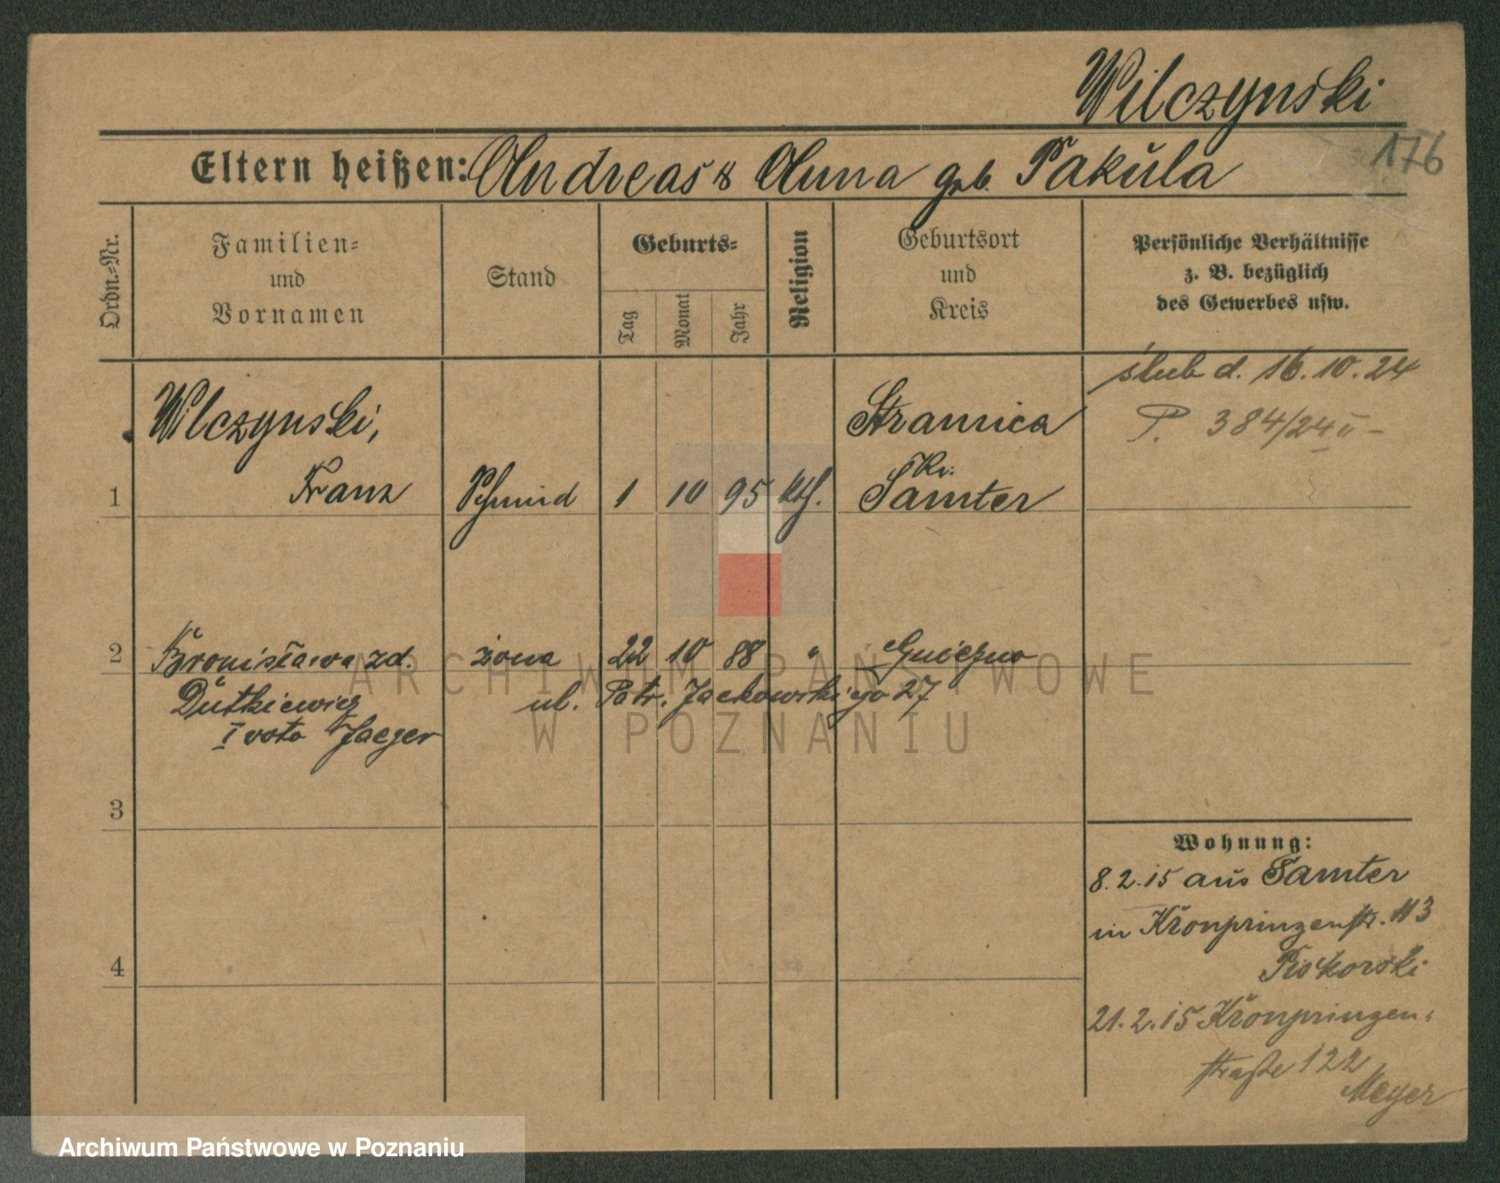 Wilczynski
176
Eltern heißen: Andreas & Anna geb. Pakula
Ordn.-Nr.
Familien-
und
Vornamen
Stand
Geburts-
Tag
Monat
Jahr
Religion
Geburtsort
und
Kreis
Persönliche Verhältnisse
z. B. bezüglich
des Gewerbes usw.
ślub d. 16.10.24
P. 384/24 II -
Wilczynski,
Stramica
Kr.
1 Franz Schmied 1 10 95 kth. Samter
2 Bronisława zd. żona 22 10 88 " Gniezno
Dutkiewicz ul. Patr. Jackowskiego 27
I voto Jaeger
3
4
Wohnung:
8.2.15 aus Samter
in Kronprinzenstr. 113
Piskorski
21.2.15 Kronprinzen-
straße 122
Meyer
ARCHIWUM PAŃSTWOWE
W POZNANIU
Archiwum Państwowe w Poznaniu